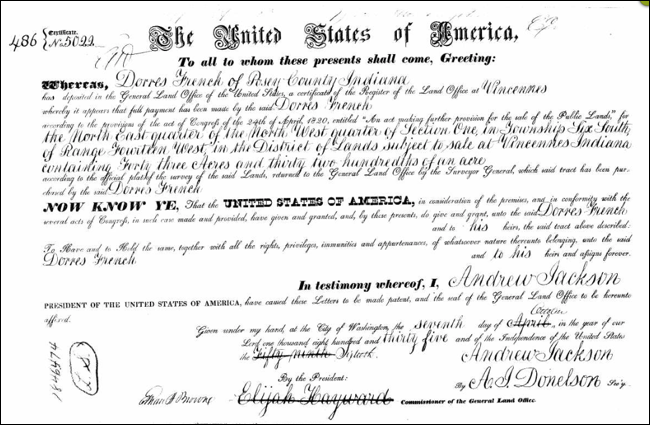 486 Certificate. No. 5022
The United States of America,
To all to whom these presents shall come, Greeting:
Whereas, Dorres French of Posey County Indiana
has deposited in the General Land Office of the United States, a certificate of the Register of the Land Office at Vincennes
whereby it appears that full payment has been made by the said Dorres French
according to the provisions of the act of Congress of the 24th of April, 1820, entitled "An act making further provision for the sale of the Public Lands," for
the North East quarter of the North West quarter of Section One, in Township Six South,
of Range Fourteen West, in the District of Lands subject to sale at Vincennes Indiana
containing Forty three Acres and thirty two hundredths of an acre
according to the official plat of the survey of the said Lands, returned to the General Land Office by the Surveyor General, which said tract has been pur-
chased by the said Dorres French
NOW KNOW YE, That the UNITED STATES OF AMERICA, in consideration of the premises, and in conformity with the
several acts of Congress, in such case made and provided, have given and granted, and, by these presents, do give and grant, unto the said Dorres French
and to his heirs, the said tract above described:
To Have and to Hold the same, together with all the rights, privileges, immunities and appurtenances, of whatsoever nature thereunto belonging, unto the said
Dorres French and to his heirs and assigns forever.
In testimony whereof, I, Andrew Jackson
PRESIDENT OF THE UNITED STATES OF AMERICA, have caused these Letters to be made patent, and the seal of the General Land Office to be hereunto
affixed.
Given under my hand, at the City of Washington, the seventh day of April in the year of our
Lord one thousand eight hundred and thirty five and of the Independence of the United States
the Fifty ninth Sixtieth.
Andrew Jackson
By the President:
By A. J. Donelson Sec'y.
Ethan A Brown
Elijah Hayward Commissioner of the General Land Office.